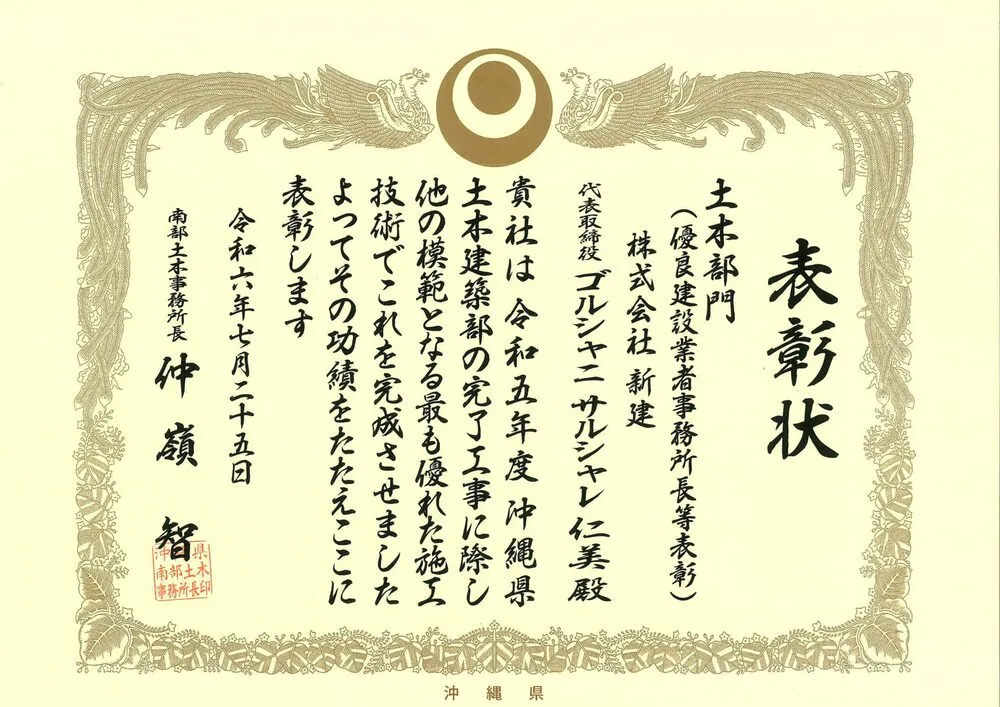 表彰状
土木部門
(優良建設業者事務所長等表彰)
株式会社 新建
代表取締役 ゴルシャニ サルシャレ 仁美 殿
貴社は令和五年度沖縄県
土木建築部の完了工事に際し
他の模範となる最も優れた施工
技術でこれを完成させました
よってその功績をたたえここに
表彰します
令和六年七月二十五日
南部土木事務所長 仲嶺 智
沖縄県
南部土木
事務所長印
沖縄県